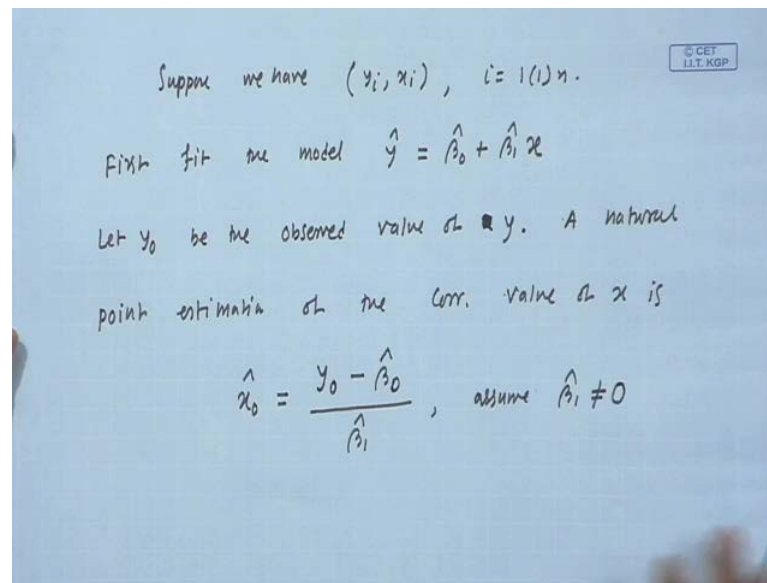 © CET
I.I.T. KGP
Suppose we have (yᵢ, xᵢ), i = 1(1)n.
First fit the model ŷ = β̂₀ + β̂₁ x
Let y₀ be the observed value of y. A natural
point estimation of the corr. value of x is
x̂₀ = (y₀ − β̂₀) / β̂₁, assume β̂₁ ≠ 0